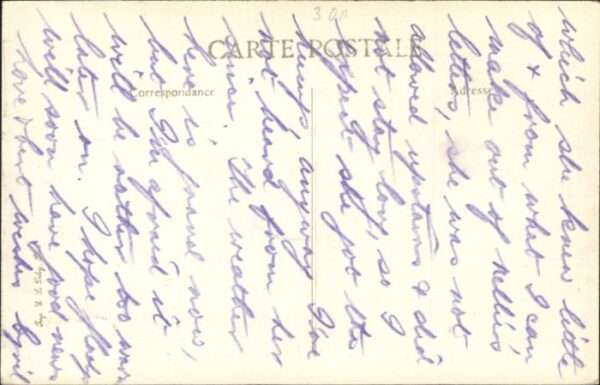 3 00
CARTE POSTALE
Correspondance
Adresse
which she knew little
of & from what I can
make out of Nellie's
letters, she was not
allowed upstairs & did
not stay long, so I
expect she got the
hump anyway I've
not heard from her
since. The weather
here is grand now,
but I'm afraid it
will be rather too warm
later on. I hope
we'll soon have good news
Love & best wishes Cyril